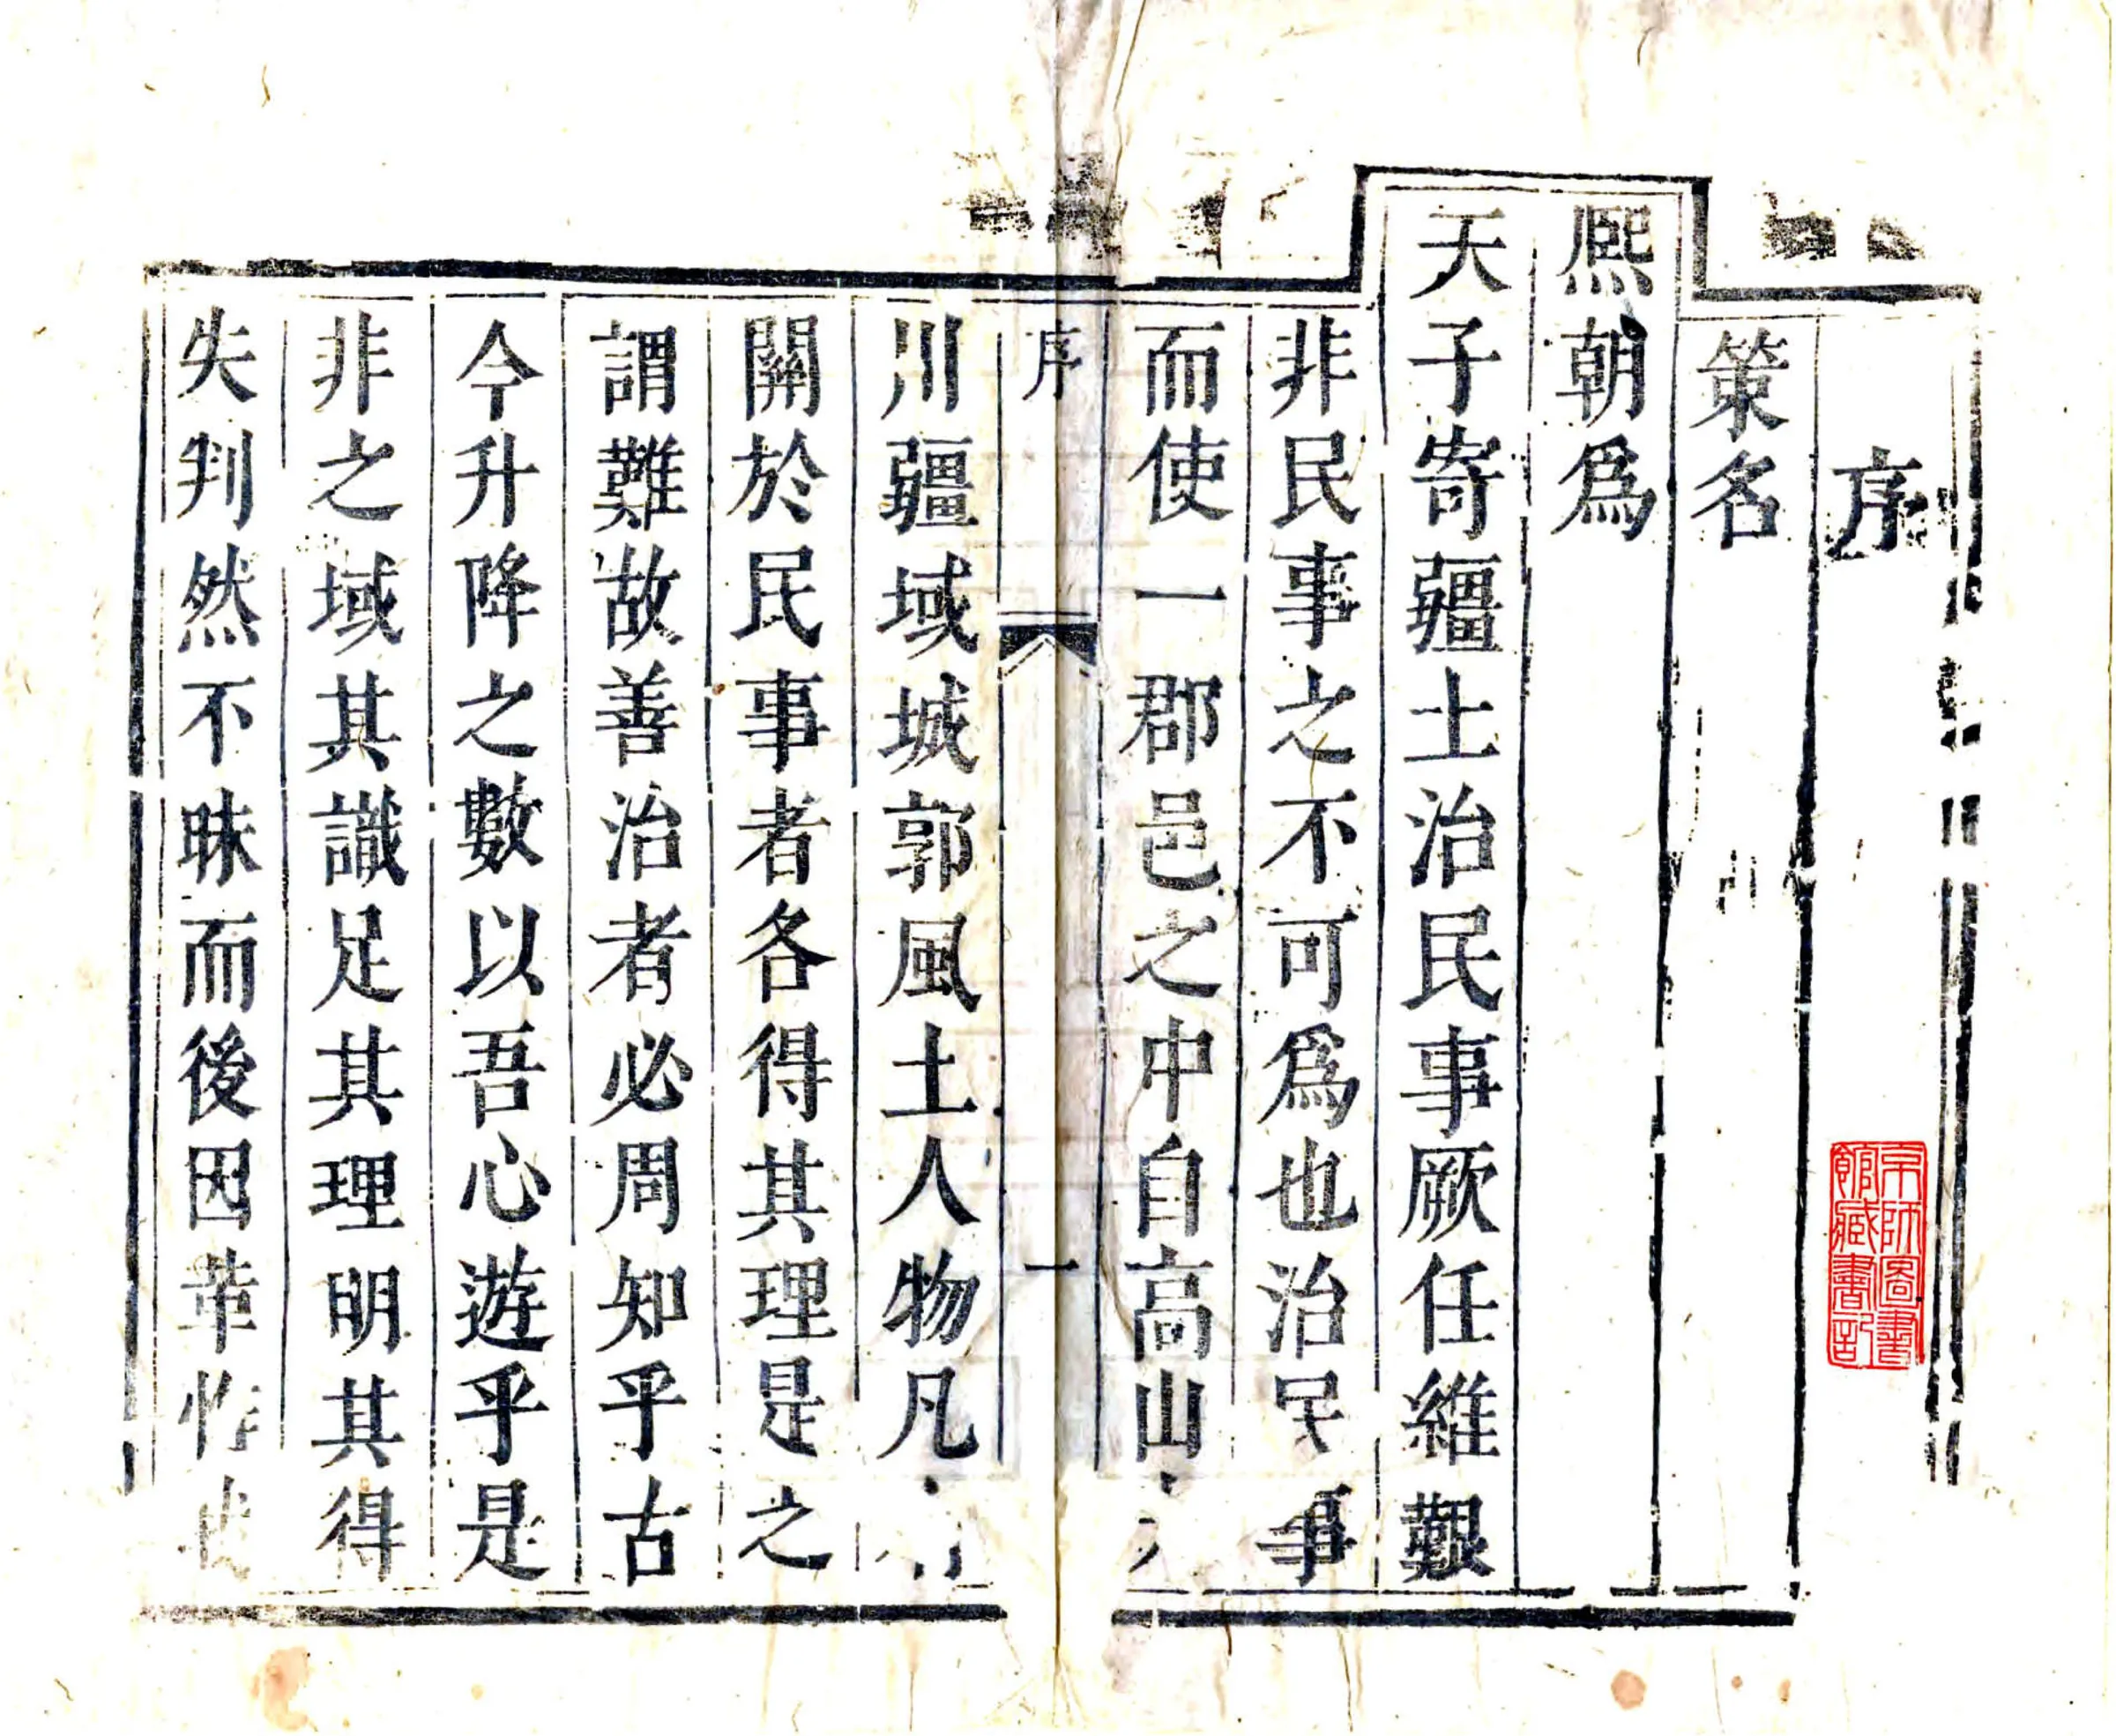 序
策名
熙朝爲
天子寄疆土治民事厥任維艱
非民事之不可爲也治民事
而使一郡邑之中自高山
序
一
川疆域城郭風土人物凡
關於民事者各得其理是之
謂難故善治者必周知乎古
今升降之數以吾心遊乎是
非之域其識足其理明其得
失判然不昧而後因革
京師圖書
館藏書記